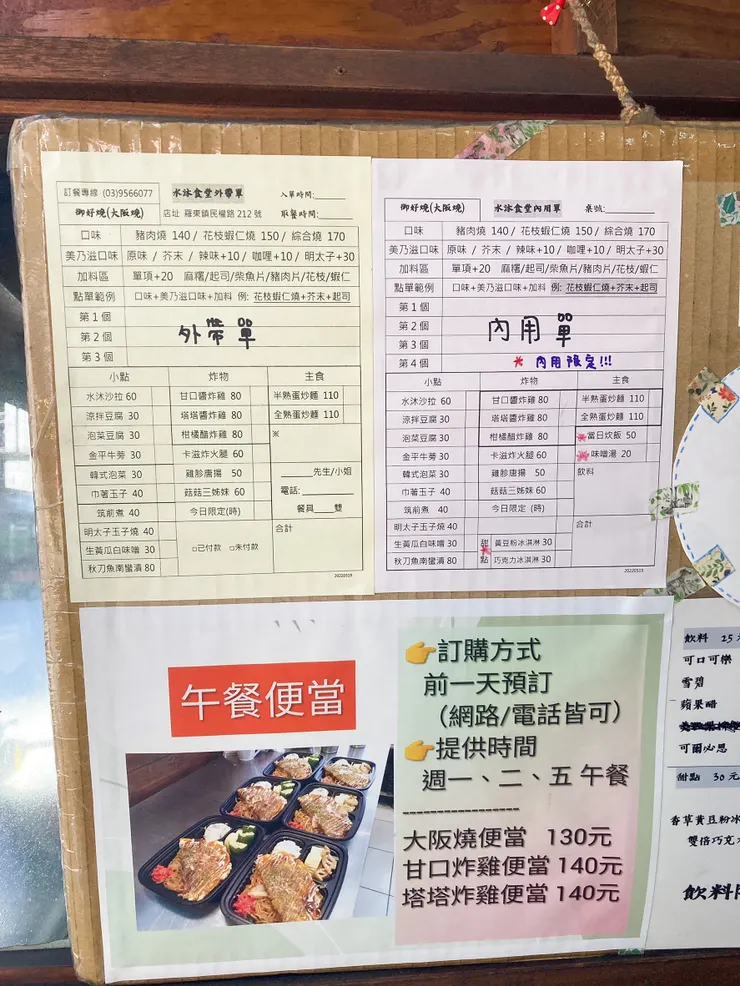 訂餐專線 (03)9566077 水沐食堂外帶單 入單時間:
御好燒(大阪燒) 店址 羅東鎮民權路 212 號 取餐時間:
口味 豬肉燒 140 / 花枝蝦仁燒 150 / 綜合燒 170
美乃滋口味 原味 / 芥末 / 辣味+10 / 咖哩+10 / 明太子+30
加料區 單項+20 麻糬/起司/柴魚片/豬肉片/花枝/蝦仁
點單範例 口味+美乃滋口味+加料 例: 花枝蝦仁燒+芥末+起司
第 1 個
第 2 個
第 3 個
外帶單
小點 炸物 主食
水沐沙拉 60 甘口醬炸雞 80 半熟蛋炒麵 110
涼拌豆腐 30 塔塔醬炸雞 80 全熟蛋炒麵 110
泡菜豆腐 30 柑橘醋炸雞 80 ※
金平牛蒡 30 卡滋炸火腿 60
韓式泡菜 30 雞胗唐揚 50 先生/小姐
巾著玉子 40 菇菇三姊妹 60 電話:
筑前煮 40 今日限定(時) 餐具 雙
明太子玉子燒 40 合計
生黃瓜白味噌 30 □已付款 □未付款
秋刀魚南蠻漬 80
20220519
御好燒(大阪燒) 水沐食堂內用單 桌號:
口味 豬肉燒 140 / 花枝蝦仁燒 150 / 綜合燒 170
美乃滋口味 原味 / 芥末 / 辣味+10 / 咖哩+10 / 明太子+30
加料區 單項+20 麻糬/起司/柴魚片/豬肉片/花枝/蝦仁
點單範例 口味+美乃滋口味+加料 例: 花枝蝦仁燒+芥末+起司
第 1 個
第 2 個
第 3 個
第 4 個
內用單
* 內用限定!!!
小點 炸物 主食
水沐沙拉 60 甘口醬炸雞 80 半熟蛋炒麵 110
涼拌豆腐 30 塔塔醬炸雞 80 全熟蛋炒麵 110
泡菜豆腐 30 柑橘醋炸雞 80 當日炊飯 50
金平牛蒡 30 卡滋炸火腿 60 味噌湯 20
韓式泡菜 30 雞胗唐揚 50 飲料
巾著玉子 40 菇菇三姊妹 60
筑前煮 40 今日限定 (時)
明太子玉子燒 40 合計
生黃瓜白味噌 30 甜點 黃豆粉冰淇淋 30
秋刀魚南蠻漬 80 巧克力冰淇淋 30
20220519
午餐便當
👉訂購方式
前一天預訂
(網路/電話皆可)
👉提供時間
週一、二、五 午餐
------------------
大阪燒便當 130元
甘口炸雞便當 140元
塔塔炸雞便當 140元
飲料 25
可口可樂
雪碧
蘋果醋
可爾必思
甜點 30 元
香草黃豆粉冰
雙倍巧克
飲料